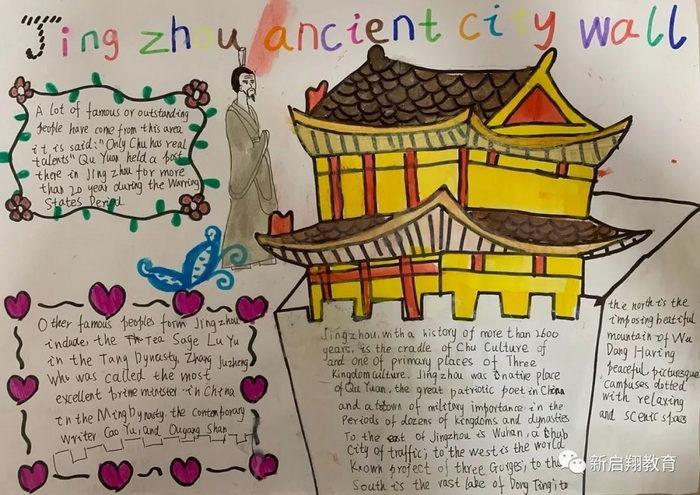 Jing zhou ancient city wall
A lot of famous or outstanding
people have come from this area
it is said: "Only Chu has real
talents" Qu Yuan held a post
there in Jing zhou for more
than 20 year during the Warring
States Period.
Other famous peoples form Jingzhou
include the Tea Sage Lu Yu
in the Tang Dynasty, Zhang Juzheng
who was called the most
excellent prime minister in China
in the Ming Dynasty. the contemporary
writer Cao Yu, and Ougang Shan
Jingzhou, with a history of more than 2600
years, is the cradle of Chu Culture of
and one of primary places of Three
Kingdom culture. Jingzhou was native place
of Qu Yuan, the great patriotic poet in China
and a town of military importance in the
Periods of dozens of kingdoms and dynasties
To the east of Jingzhou is Wuhan, a hub
City of traffic; to the west is the world
Known project of three Gorges; to the
South is the vast lake of Dong Ting; to
the north is the
imposing beatiful
mountain of Wu
Dang Having
peaceful picturesque
campuses dotted
with relaxing
and scenic spots
新启翔教育